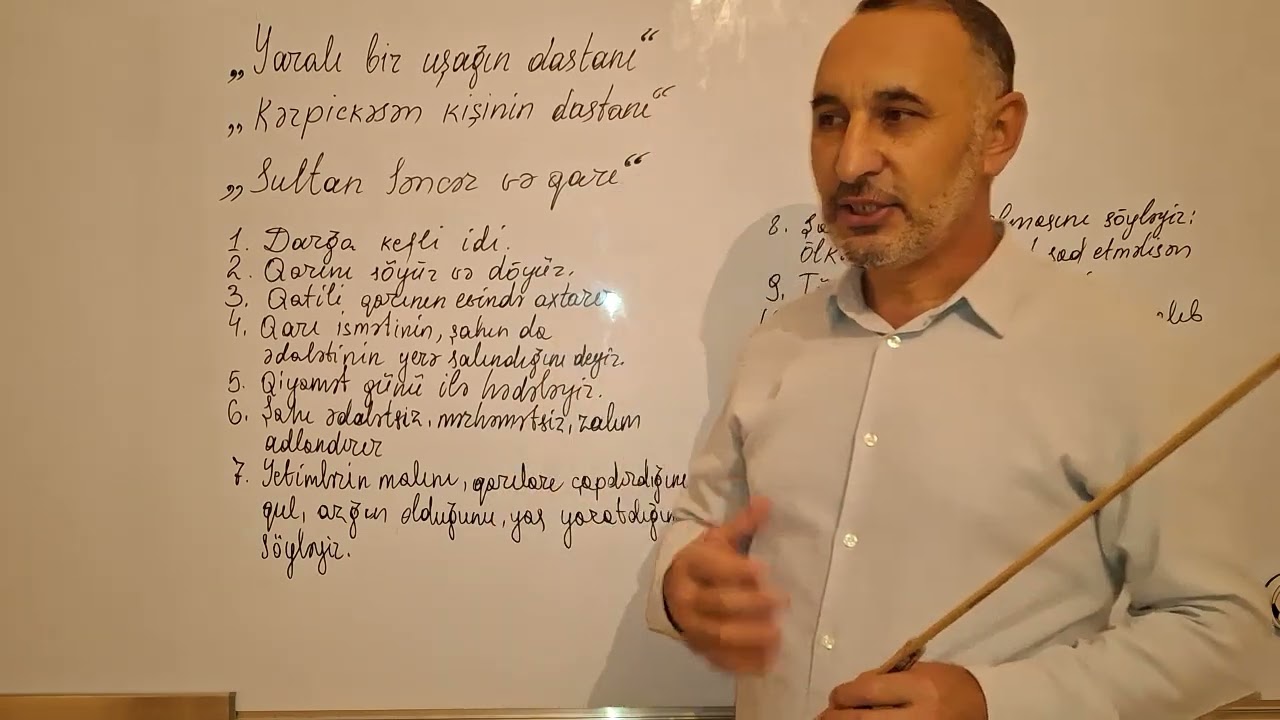 „Yaralı bir uşağın dastanı“
„Kərpickəsən kişinin dastanı“
„Sultan Səncər və qarı“
1. Darğa kefli idi.
2. Qarını söyür və döyür.
3. Qatili qarının evində axtarır
4. Qarı ismətinin, şahın da
ədalətinin yerə salındığını deyir.
5. Qiyamət günü ilə hədələyir.
6. Şahı ədalətsiz, mərhəmətsiz, zalım
adlandırır
7. Yetimlərin malını, qarıları çapdırdığını
qul, azğın olduğunu, yas yaratdığın
söyləyir.
8. söyləyir:
etməlisən
9.